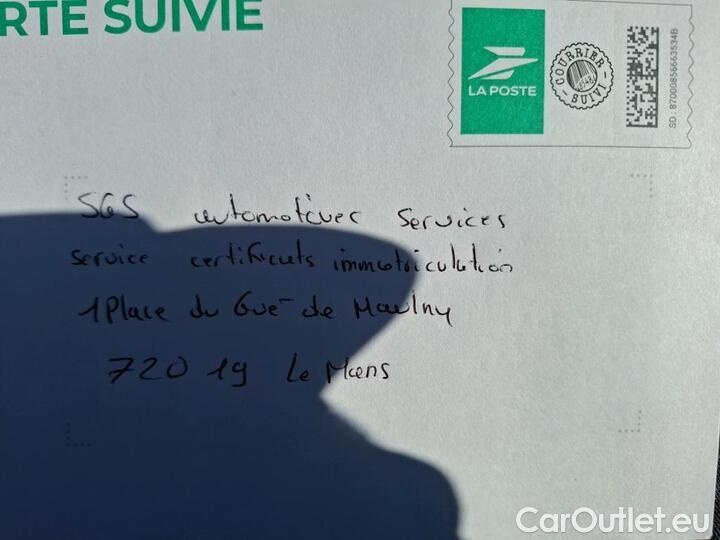 RTE SUIVIE
LA POSTE
COURRIER
SUIVI
SD : 87000856663534B
SGS automotives Services
service certificats immatriculation
1 Place du Gué de Maulny
72019 Le Mans
CarOutlet.eu